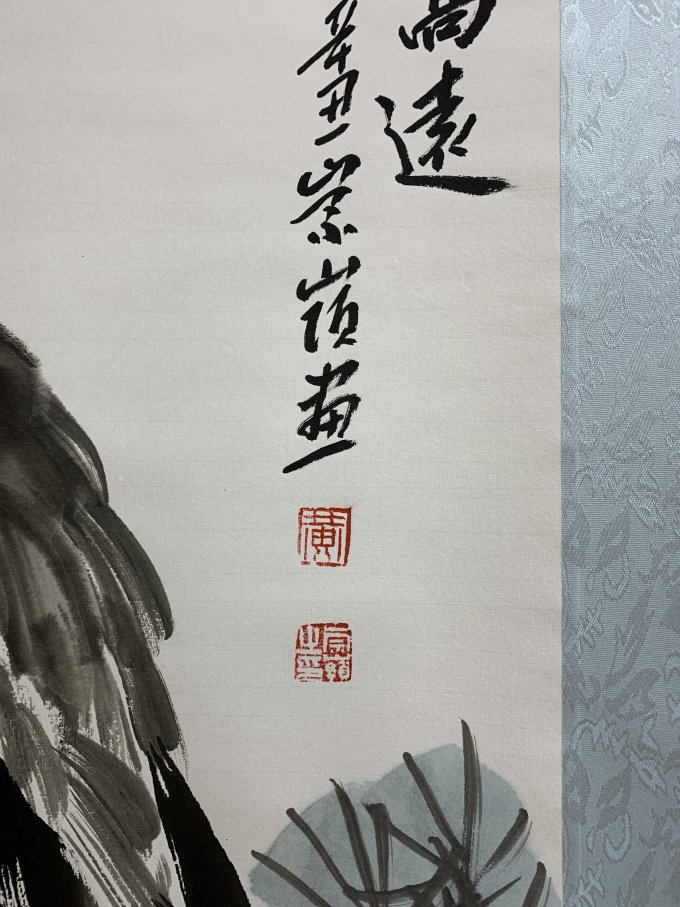 尚遠
辛丑崇嶺畫